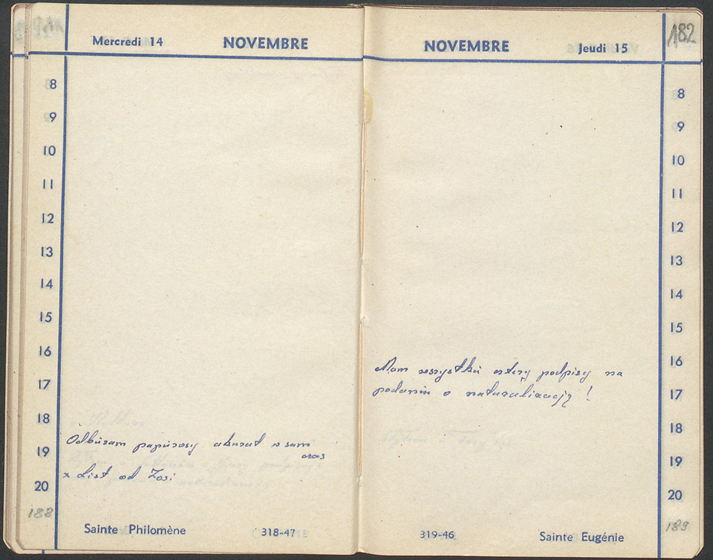 Mercredi 14 NOVEMBRE
8
9
10
11
12
13
14
15
16
17
18
19
20
Odbieram papierosy akurat w sam
czas
x List od Zosi
188
Sainte Philomène 318-47
NOVEMBRE Jeudi 15
182
8
9
10
11
12
13
14
15
16
17
18
19
20
Mam wszystkie cztery podpisy na
podaniu o naturalizację !
189
319-46 Sainte Eugénie